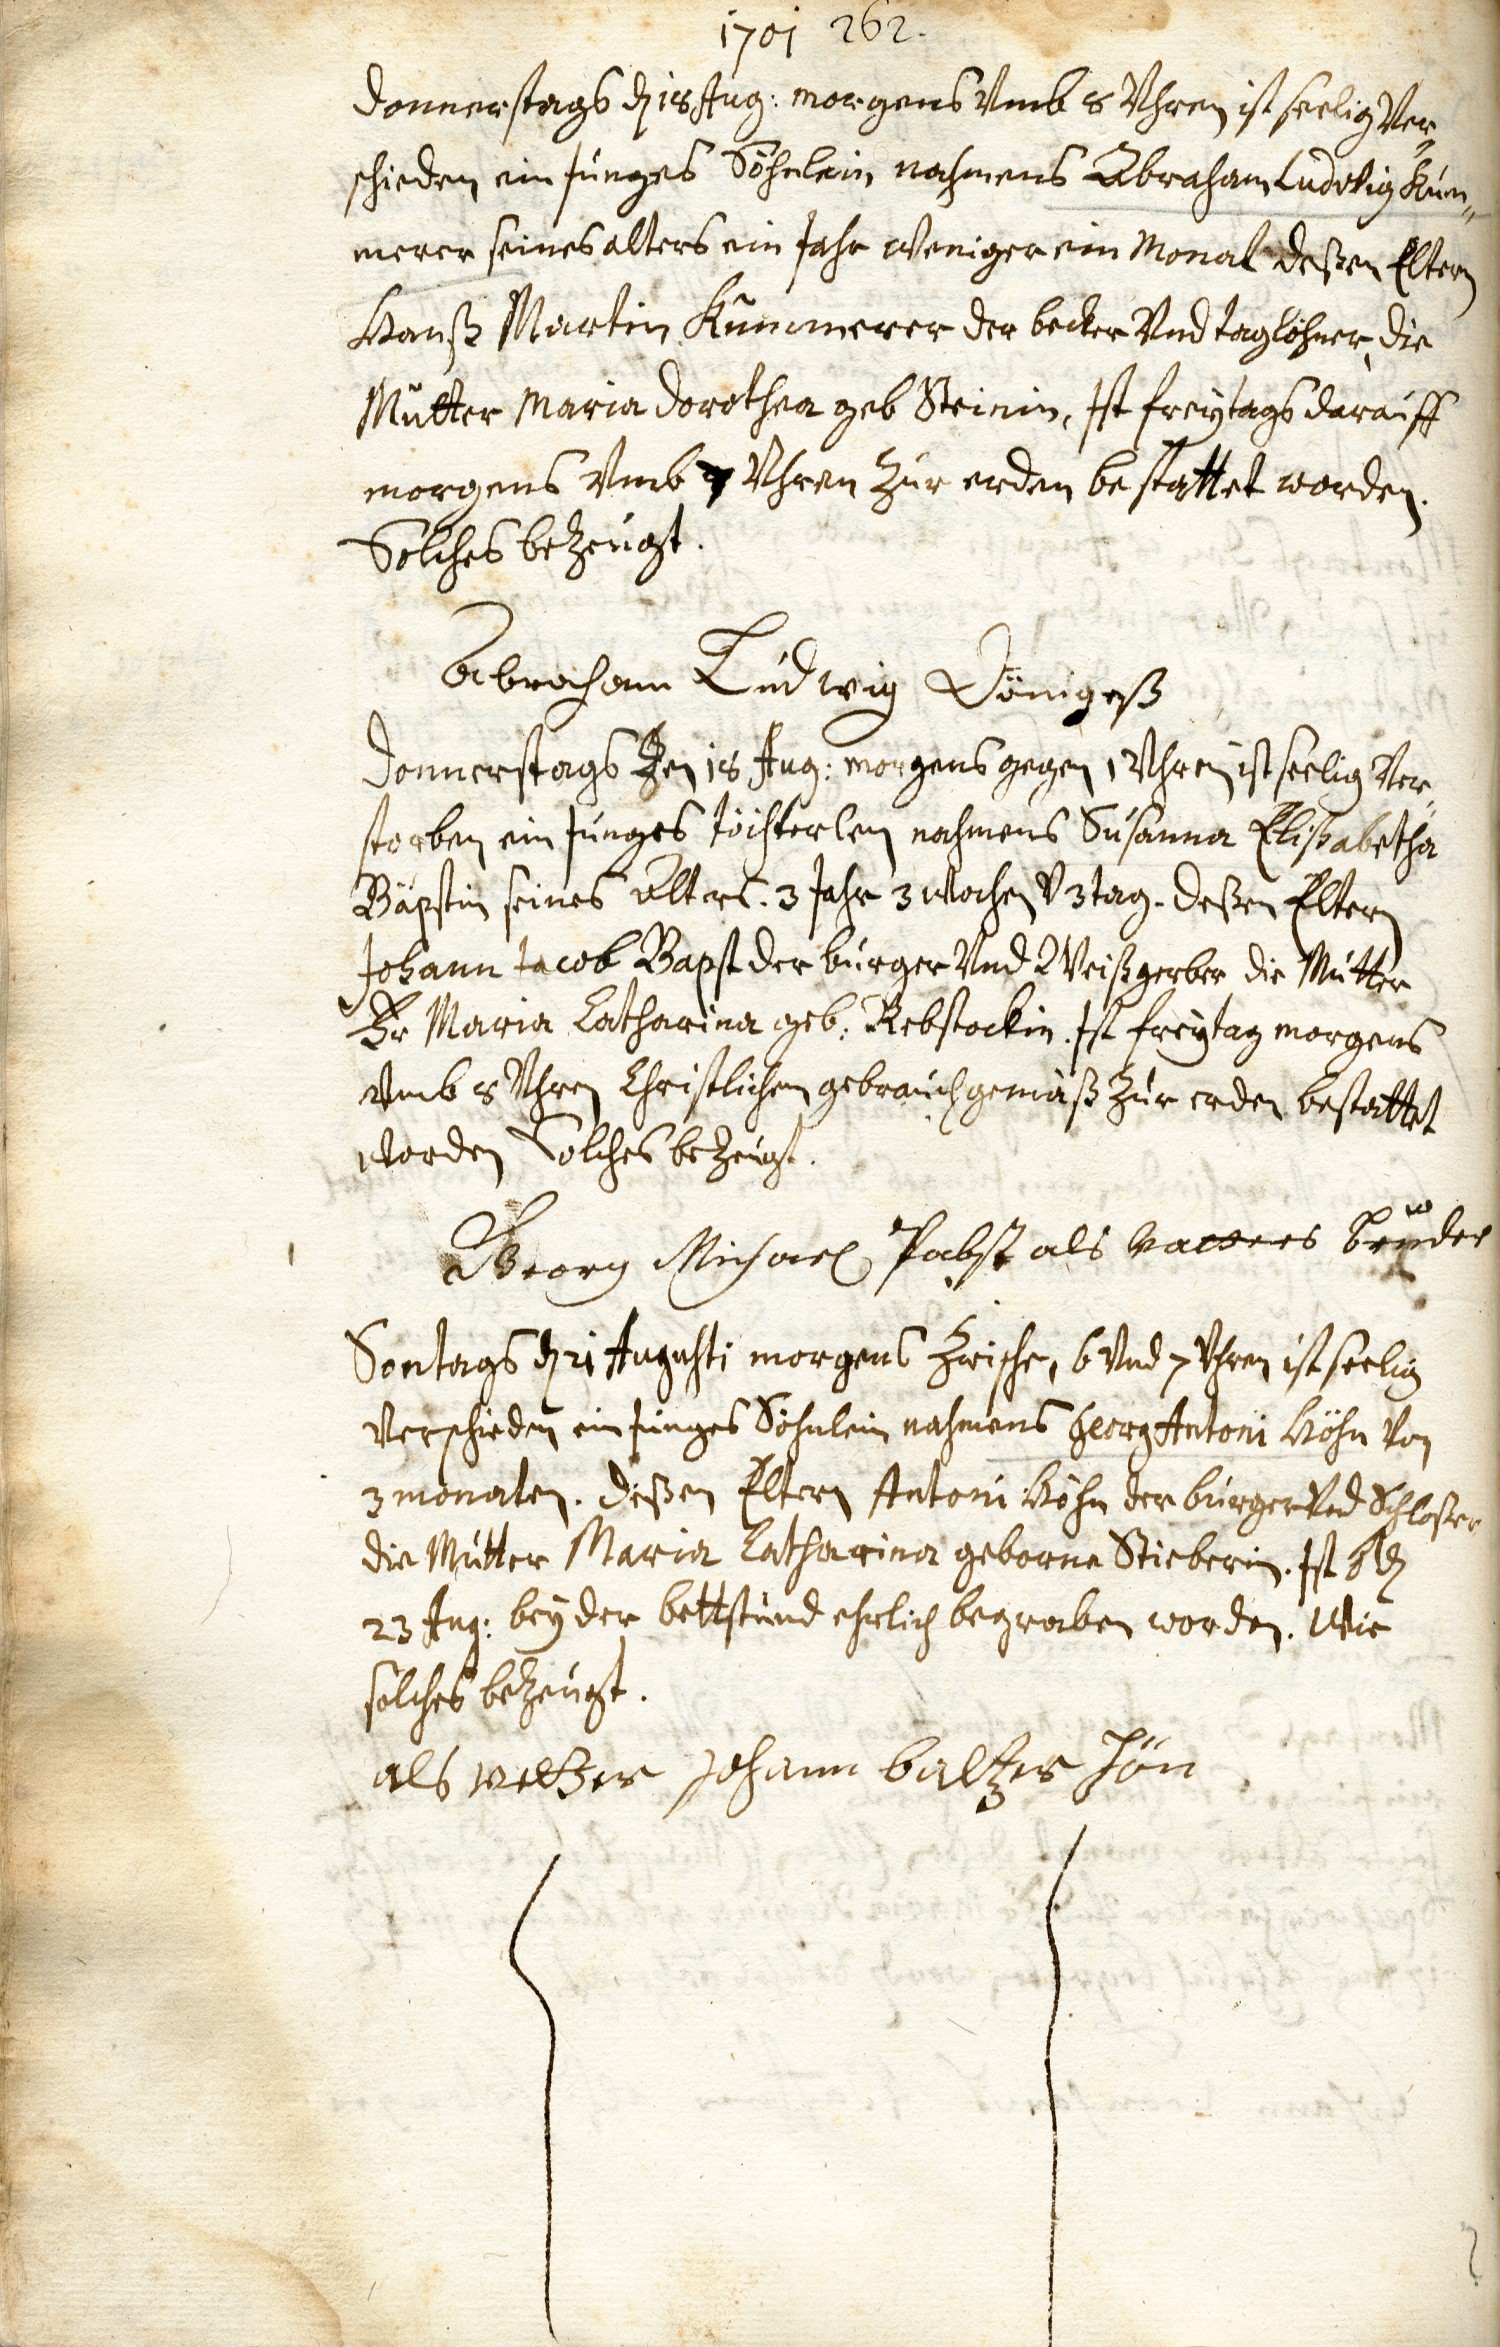 1701 262.
Donnerstags d 18 Aug: morgens Umb 8 Uhren ist seelig Ver-
schieden ein junges Söhnlein nahmens Abraham Ludwig Küm-
merer seines alters ein Jahr weniger ein Monat deßen Eltern
Hanß Martin Kümmerer der becker Und taglöhner, die
Mutter Maria Dorothea geb Steinin, Ist freytags darauff
morgens Umb Uhren Zur erden bestattet worden.
Solches bezeugt.
Abraham Ludwig Dönigeß
Donnerstags Den 18 Aug: morgens gegen 1 Uhren ist seelig Ver-
storben ein junges töchterlein nahmens Susanna Elisabetha
Bäpstin seines Alters. 3 Jahr 3 Wochen V 3 tag. deßen Eltern
Johann Jacob Bapst der burger Und Weißgerber die Mutter
Fr Maria Catharina geb: Rebstockin. Ist freytag morgens
Umb 8 Uhren Christlichem gebrauch gemäß Zur erden bestattet
worden Solches bezeugt.
Georg Michael Pabst als vatters bruder
Sontags d 21 Augusti morgens Zwische, 6 Und 7 Uhren ist seelig
Verschieden ein junges Söhnlein nahmens Georg Antoni Höhn Von
3 monaten. deßen Eltern Antoni Höhn der burger Und Schloßer
die Mutter Maria Catharina geborne Stieberin. Ist
23 Aug: bey der bettstund ehrlich begraben worden. Wie
solches bezeugt.
als vetter Johann baltzer Hön